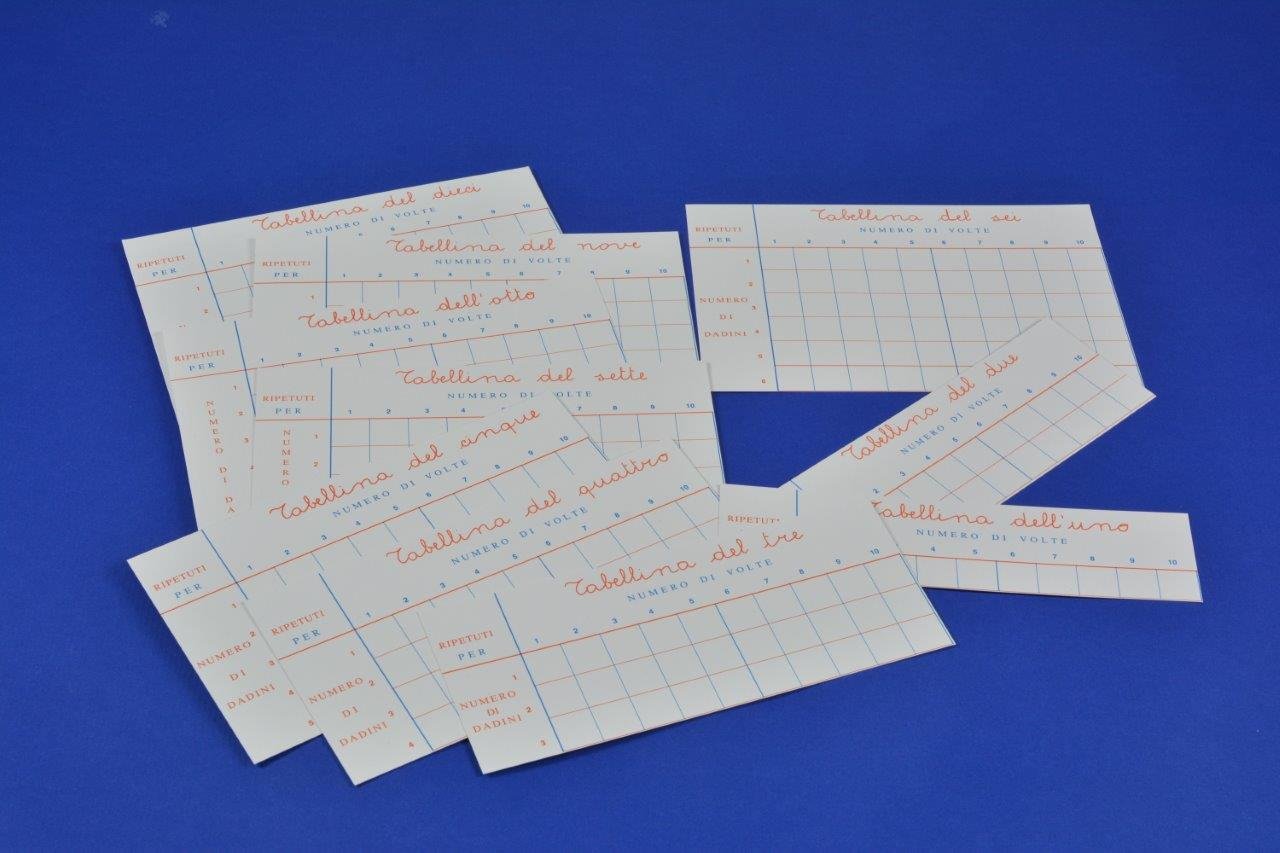 Tabellina del dieci
NUMERO DI VOLTE
RIPETUTI
PER
1 5 6 7 8 9 10
1
2
Tabellina del nove
NUMERO DI VOLTE
RIPETUTI
PER
1 2 3 4 5 6 7 8 9 10
1
Tabellina dell'otto
NUMERO DI VOLTE
RIPETUTI
PER
1 2 3 4 5 6 7 8 9 10
1
2
3
NUMERO DI DA
Tabellina del sette
NUMERO DI VOLTE
RIPETUTI
PER
1 2 3 4 7 8 9 10
1
2
NUMERO
Tabellina del sei
NUMERO DI VOLTE
RIPETUTI
PER
1 2 3 4 5 6 7 8 9 10
1
2
NUMERO
3
DI
4
DADINI
5
6
Tabellina del cinque
NUMERO DI VOLTE
RIPETUTI
PER
1 2 3 4 5 6 7 8 9 10
1
2
NUMERO
3
DI
4
DADINI
5
Tabellina del quattro
NUMERO DI VOLTE
RIPETUTI
PER
1 2 3 4 5 6 7 8 9 10
1
NUMERO
2
DI
3
DADINI
4
Tabellina del tre
NUMERO DI VOLTE
RIPETUTI
PER
1 2 3 4 5 6 7 8 9 10
1
NUMERO
DI
2
DADINI
3
Tabellina del due
NUMERO DI VOLTE
2 3 4 5 6 7 8 9 10
RIPETUT
Tabellina dell'uno
NUMERO DI VOLTE
4 5 6 7 8 9 10